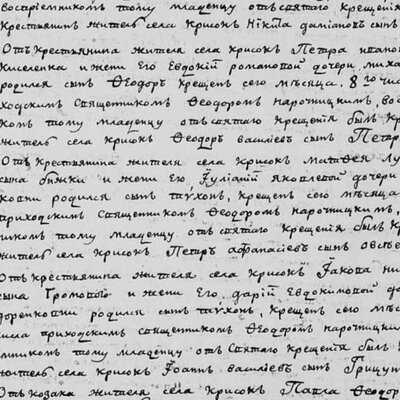 воспрiемникомъ тому младенцу отъ святаго крещенiя
крестьянинъ житель села Крисокъ Нiкiта Дамiановъ сынъ
Отъ крестьянина жителя села Крисокъ Петра Иванов
Киселенка и жены его Евдокiи Романовой дочери Миха
родился сынъ Ѳеодоръ крещенъ сего мѣсяца 8го чис
ходскимъ священникомъ Ѳеодоромъ Нарочицкимъ, вос
комъ тому младенцу отъ святаго крещенiя былъ кр
житель села Крисокъ Ѳеодоръ Василiевъ сынъ Петр
Отъ крестьянина жителя села Крисокъ Матѳея Лу
сына и жены его Iулiанiи Яковлевой дочери
ковни родился сынъ Тихонъ, крещенъ сего мѣсяца
приходскимъ священникомъ Ѳеодоромъ Нарочицкимъ,
никомъ тому младенцу отъ святаго крещенiя былъ кр
житель села Крисокъ Петръ Аѳанасiевъ сынъ Овсѣе
Отъ крестьянина жителя села Крисокъ Iакова Ни
сына Громового и жены его Дарiи Евдокимовой до
доренковни родился сынъ Тихонъ, крещенъ сего мѣс
числа приходскимъ священникомъ Ѳеодоромъ Нарочицким
емникомъ тому младенцу отъ святаго крещенiя былъ
житель села Крисокъ Iоаннъ Васiлiевъ сынъ Грицун
Отъ козака жителя села Крисокъ Павла Ѳеодор